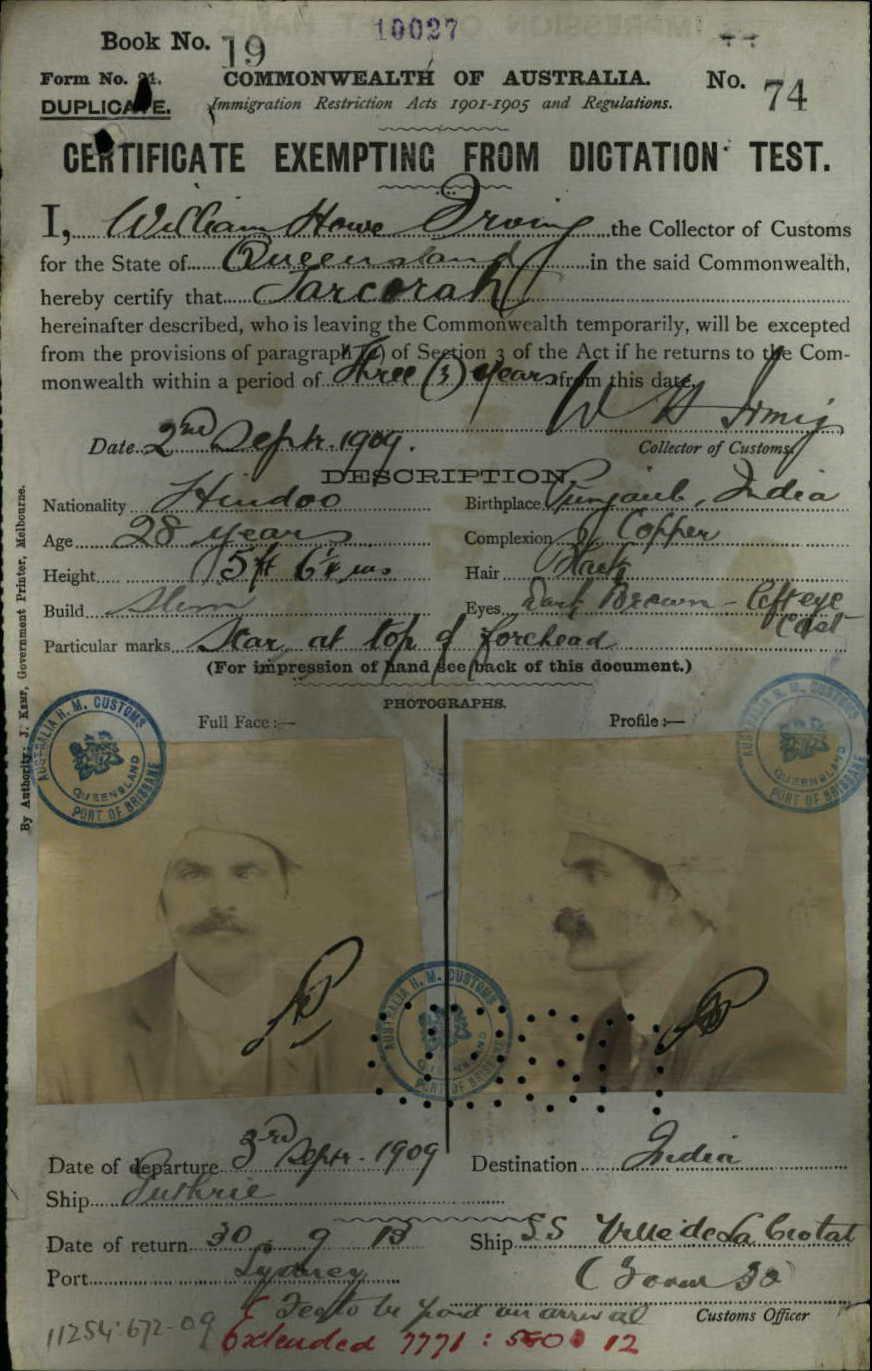 10027
Book No. 19
Form No. 21. COMMONWEALTH OF AUSTRALIA. No. 74
DUPLICATE. Immigration Restriction Acts 1901-1905 and Regulations.
CERTIFICATE EXEMPTING FROM DICTATION TEST.
I, William Howe Irving the Collector of Customs
for the State of Queensland in the said Commonwealth,
hereby certify that Sarcorah
hereinafter described, who is leaving the Commonwealth temporarily, will be excepted
from the provisions of paragraph (a) of Section 3 of the Act if he returns to the Com-
monwealth within a period of Three (3) years from this date.
W H Irving
Date 2nd Septr. 1909. Collector of Customs.
DESCRIPTION.
Nationality Hindoo Birthplace Punjaub, India
Age 28 years Complexion Copper
Height 5ft 6¼ ins Hair Black
Build Slim Eyes Dark Brown - Left eye Cast
Particular marks Scar at top of forehead
(For impression of hand see back of this document.)
PHOTOGRAPHS.
Full Face:— Profile:—
AUSTRALIA H. M. CUSTOMS QUEENSLAND PORT OF BRISBANE
AUSTRALIA H. M. CUSTOMS QUEENSLAND PORT OF BRISBANE
AUSTRALIA H. M. CUSTOMS QUEENSLAND PORT OF BRISBANE
Date of departure 3rd Septr - 1909 Destination India
Ship Guthrie
Date of return 30 . 9 13 Ship SS Ville de La Ciotat
Port Sydney (Form 32)
Fee to be paid on arrival Customs Officer
11254:672-09 Extended 7771 : 12
By Authority: J. Kemp, Government Printer, Melbourne.